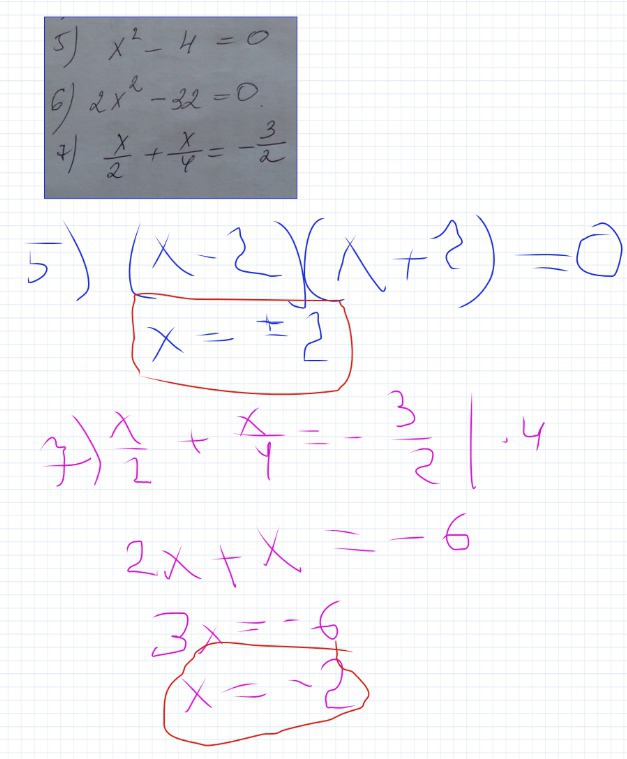 5) x² - 4 = 0
6) 2x² - 32 = 0.
7) x/2 + x/4 = - 3/2
5) (x - 2)(x + 2) = 0
x = ± 2
7) x/2 + x/4 = - 3/2 | · 4
2x + x = - 6
3x = - 6
x = - 2